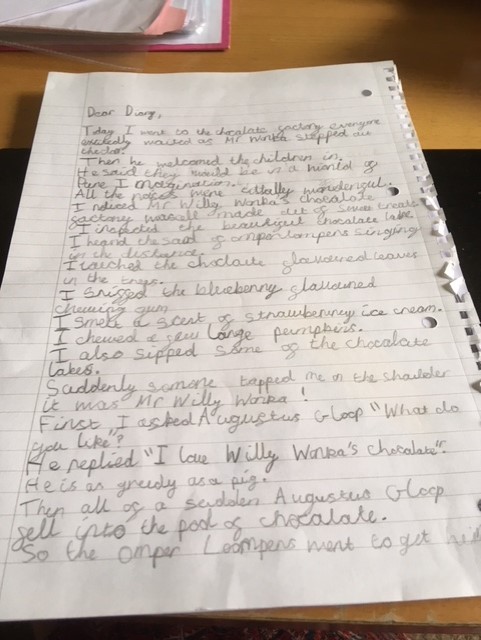 Dear Diary,
Today I went to the chocolate factory everyone
excitedly waited as Mr Wonka stepped out
the door.
Then he welcomed the children in.
He said they would be in a world of
Pure Imagination.
All the noises were actually wonderful.
I noticed Mr Willy Wonka's chocolate
factory was all made out of sweet treats
I inspected the beautiful chocolate lake.
I heard the of singing
in the distance.
I touched the choclate flavoured leaves
in the trees.
I sniffed the blueberry flavoured
chewing gum
I smelt a scent of strawberry ice cream.
I chewed a few large pumpkins.
I also sipped some of the chocolate
lakes.
Suddenly somone tapped me on the shoulder
it was Mr Willy Wonka!
First, I asked Augustus Gloop "What do
you like"?
He replied "I love Willy Wonka's chocolate".
He is as greedy as a pig.
Then all of a sudden Augustus Gloop
fell into the pool of chocalate.
So the omper Loompers went to get